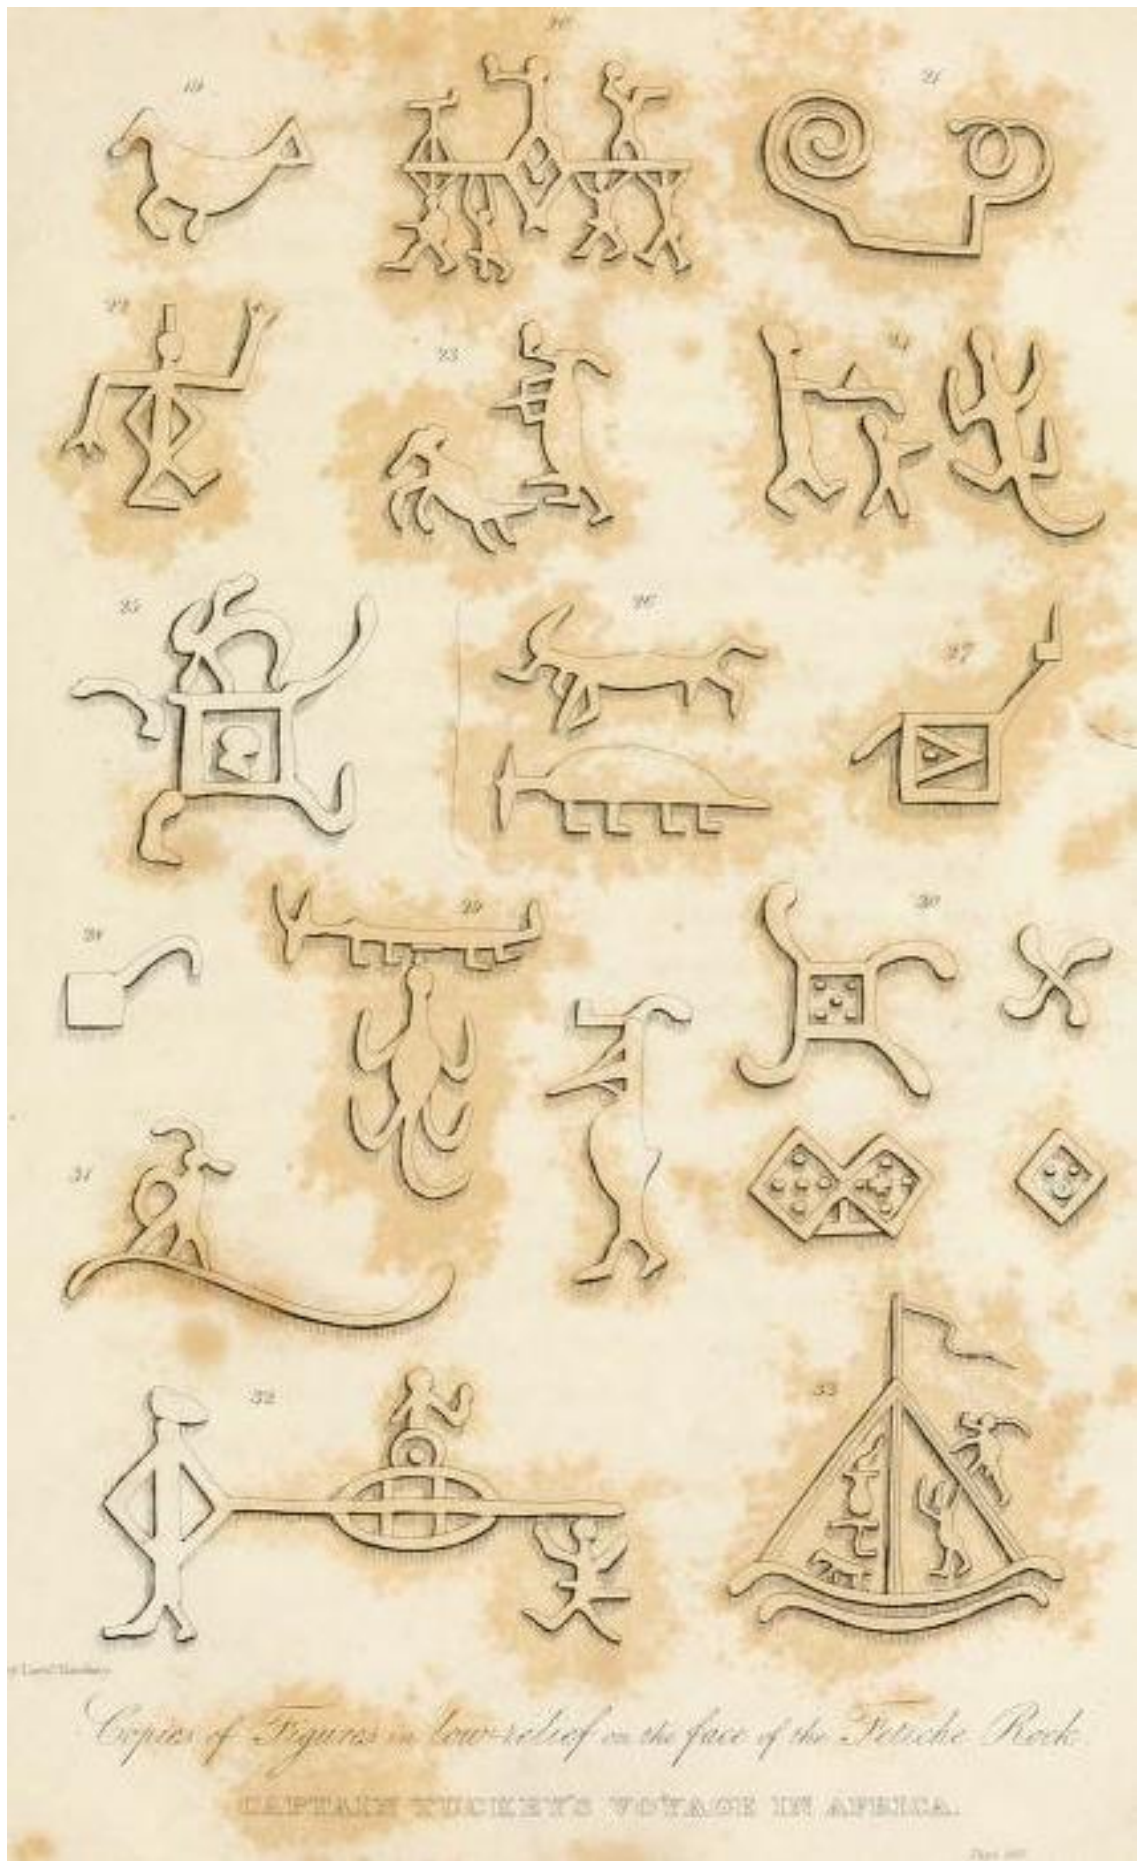 19
20
21
22
23
24
25
26
27
28
29
30
31
32
33
Copies of Figures in low-relief on the face of the Fetiche Rock.
CAPTAIN TUCKEY'S VOYAGE IN AFRICA.